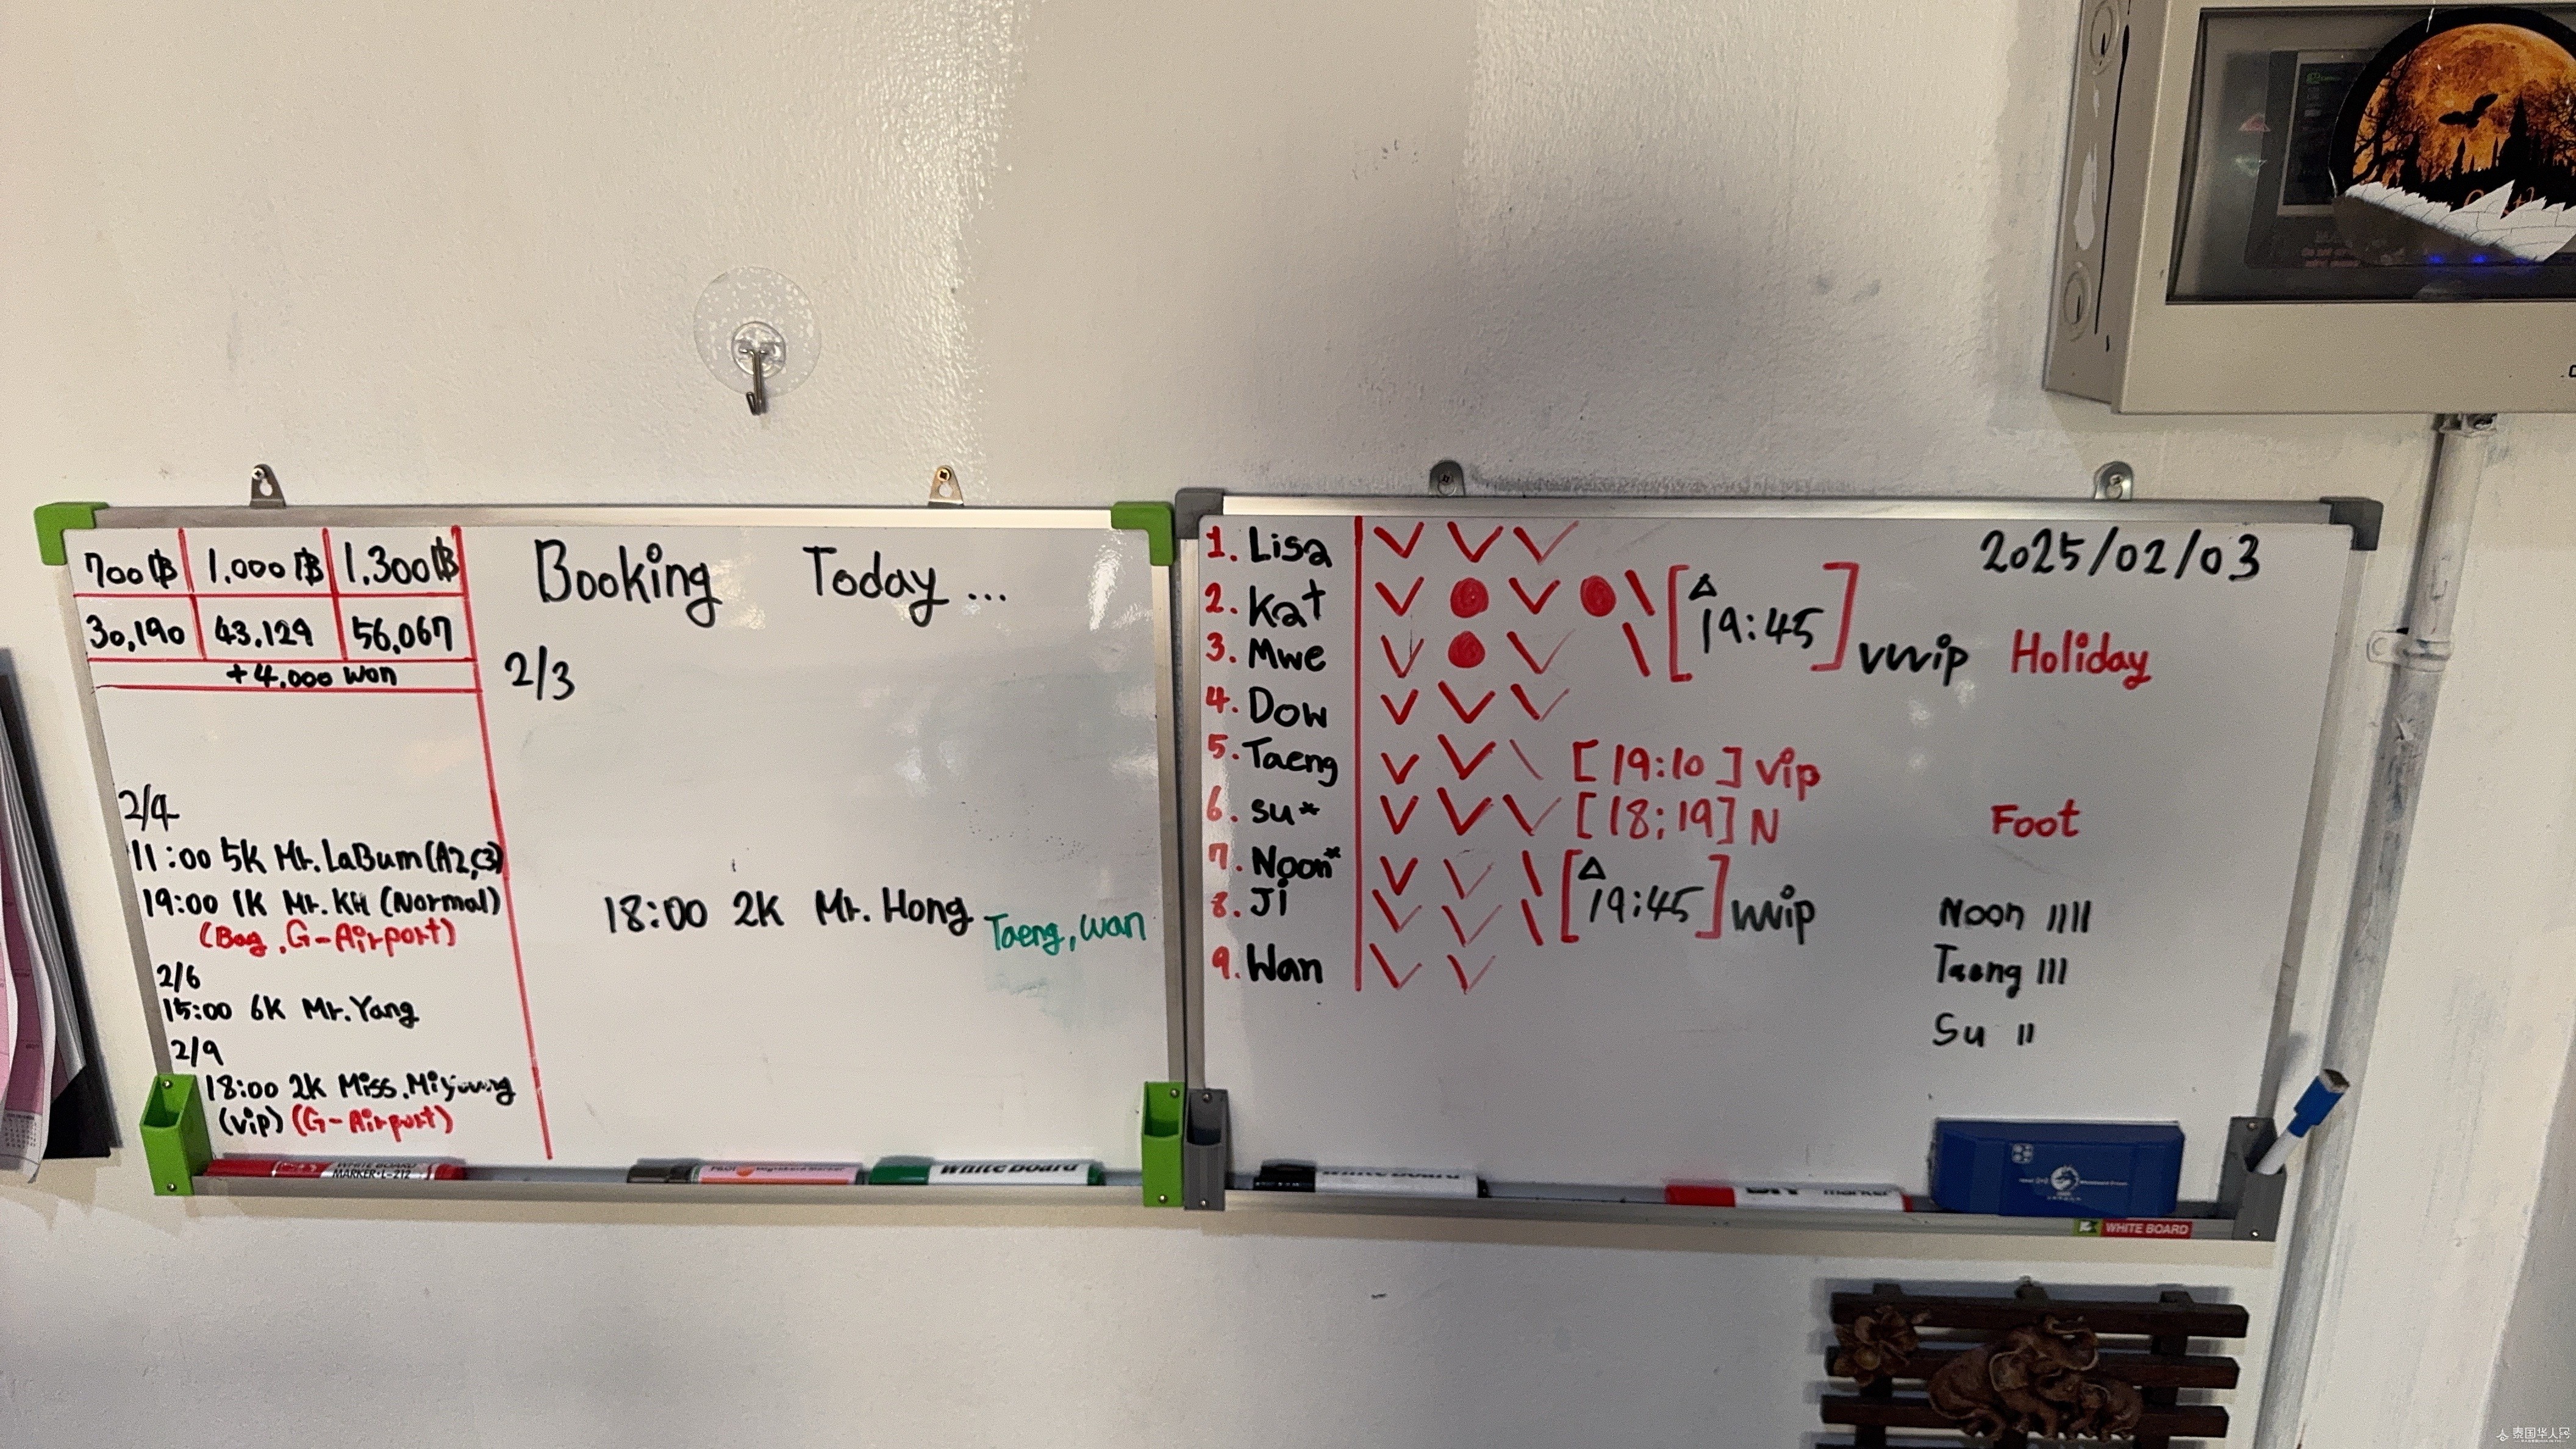 700฿ 1.000฿ 1.300฿
30,190 43.129 56,067
+4.000 won
Booking Today...
2/3
18:00 2K Mr. Hong Taeng, wan
2/4
11:00 5K Mr. LaBum (A2,C3)
19:00 1K Mr. KH (Normal)
(Bag, G-Airport)
2/6
15:00 6K Mr. Yang
2/9
18:00 2K Miss. Miyoung
(vip) (G-Airport)
WHITE BOARD
MARKER-L-212
PILOT
White Board
2025/02/03
1. Lisa
2. Kat
3. Mwe
[19:45] vvvip Holiday
4. Dow
5. Taeng [19:10] vip
6. su* [18:19] N
7. Noon*
8. Ji
[19:45] vvvip
9. Wan
Foot
Noon IIII
Taeng III
Su II
White Board
marker
WHITE BOARD
泰国华人网